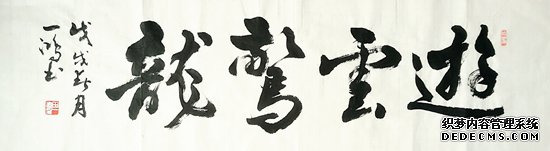 遊雲驚龍
戊戌春月
一鴻书
织梦内容管理系统
DEDECMS.COM